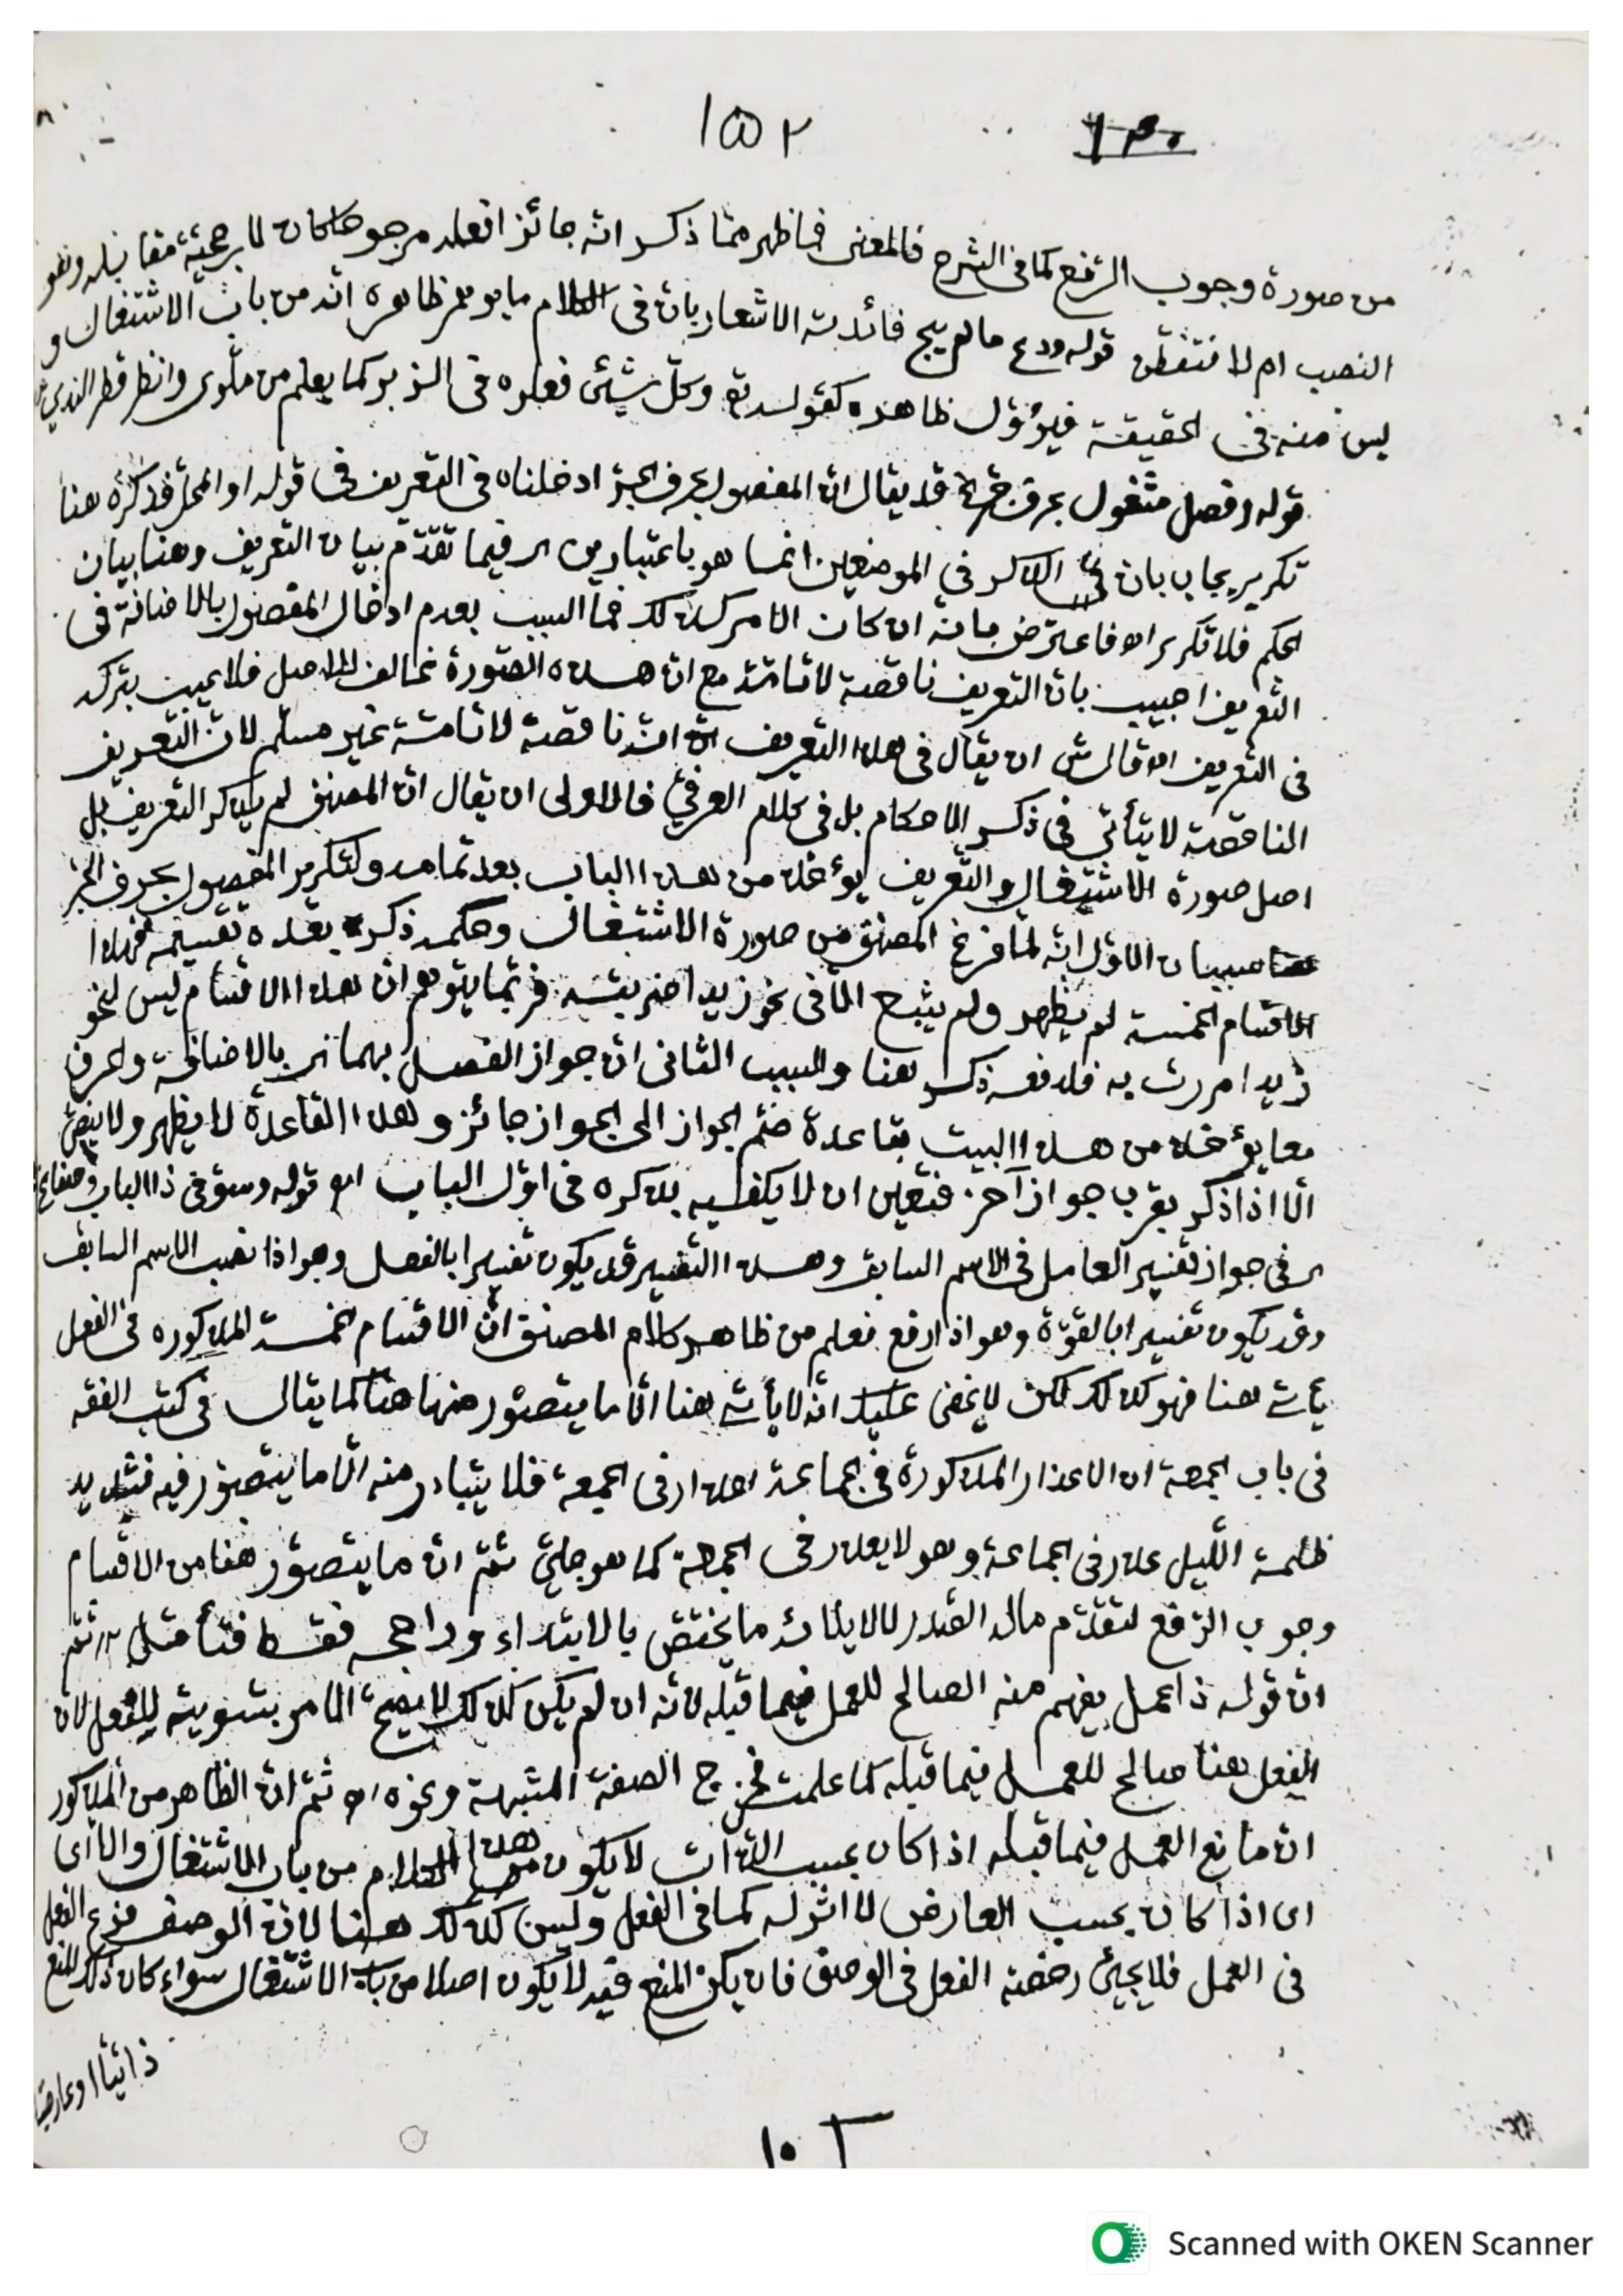 ١٥٢ ١٣٠
من صورة وجوب الرفع كما فى الشرح فالمعنى فما ظهر مما ذكر انه جائز افعله مرجوحا كان لا رجحية مقابله وهو
النصب ام لا فتفطن قوله ودع ما لم يبح فائدته الاشعار بان فى الكلام ما يوهم ظاهره انه من باب الاشتغال و
ليس منه فى الحقيقة فيؤول ظاهره كقوله تع وكل شيئ فعلوه فى الزبر كما يعلم من متلوى وانظر قطر الندى
قوله وفصل مشغول بحرف جر الخ قد يقال ان المفصول بحرف الجر ادخلناه فى التعريف فى قوله او المحل فذكره هنا
تكرير يجاب بان الذكر في الموضعين انما هو باعتبارين اى فيما تقدم بيان التعريف وهنا بيان
الحكم فلا تكرير اه فاعترض بانه ان كان الامر كذلك فما السبب بعدم ادخال المفصول بالاضافة فى
التعريف اجيب بان التعريف ناقصة لا تامة مع ان هذه الصورة مخالف للاصل فلا عيب بتركه
فى التعريف اه قال ش ان يقال فى هذا التعريف انه ناقصة لا تامة غير مسلم لان التعريف
الناقصة لا يتأتى فى ذكر الاحكام بل فى كلام العرفي فالاولى ان يقال ان المصنف لم يذكر التعريف بل
اصل صورة الاشتغال والتعريف يؤخذ من هذا الباب بعد تمامه ولتكرير المفصول بحرف الجر
سببان الاول انه لما فرغ المصنف من صورة الاشتغال وحكمه ذكر بعده تقسيمه فهذا
الاقسام الخمسة لم يظهر ولم يتبع الا فى نحو زيدا ضربته فربما يتوهم ان هذا الاقسام ليس لنحو
زيدا مررت به فلدفعه ذكر هنا والسبب الثانى ان جواز الفصل بهما اى بالاضافة والحرف
معا يؤخذ من هذا البيت بقاعدة ضم الجواز الى الجواز جائز وهذا القاعدة لا يظهر ولا ينص
الا اذا ذكر بقرب جواز آخر فتعين ان لا يكفيه بذكره فى اول الباب اه قوله وسو فى ذا الباب وصفا الخ
اى فى جواز تفسير العامل فى الاسم السابق وهذا التفسير قد يكون تفسيرا بالفعل وهو اذا نصب الاسم السابق
وقد يكون تفسيرا بالقوة وهو اذا رفع فعلم من ظاهر كلام المصنف ان الاقسام خمسة المذكوره فى الفعل
يأتى هنا فهو كذلك لكن لا يخفى عليك انه لا يأتى هنا الا ما يتصور منها هنا كما يقال فى كتب الفقه
فى باب الجمعة ان الاعذار المذكورة فى الجماعة اعذار فى الجمعة فلا يتبادر منه الا ما يتصور فيه فتشديد
ظلمة الليل عذر فى الجماعة وهو لا يعذر فى الجمعة كما هو جلي ثم ان ما يتصور هنا من الاقسام
وجوب الرفع لتقدم ماله الصدر لا لايلائه ما يختص بالابتداء وراجحه فقط فتأمل ثم
ان قوله ذا عمل يفهم منه الصالح للعمل فيما قبله لانه ان لم يكن كذلك لا يصح الامر بتسويته للفعل لان
الفعل هنا صالح للعمل فيما قبله كما علمت فخرج الصفة المشبهة ونحوه اه ثم ان الظاهر من المذكور
ان مانع العمل فيما قبله اذا كان بحسب الذات لا يكون هذا الكلام من باب الاشتغال والا اى
اى اذا كان بحسب العارض لا اثر له كما فى الفعل وليس كذلك هنا لان الوصف فرع الفعل
فى العمل فلا يجيئ رخصة الفعل فى الوصف فان يكن المنع فيه لا يكون اصلا من باب الاشتغال سواء كان ذلك المنع
ذاتيا او عارضيا
Scanned with OKEN Scanner